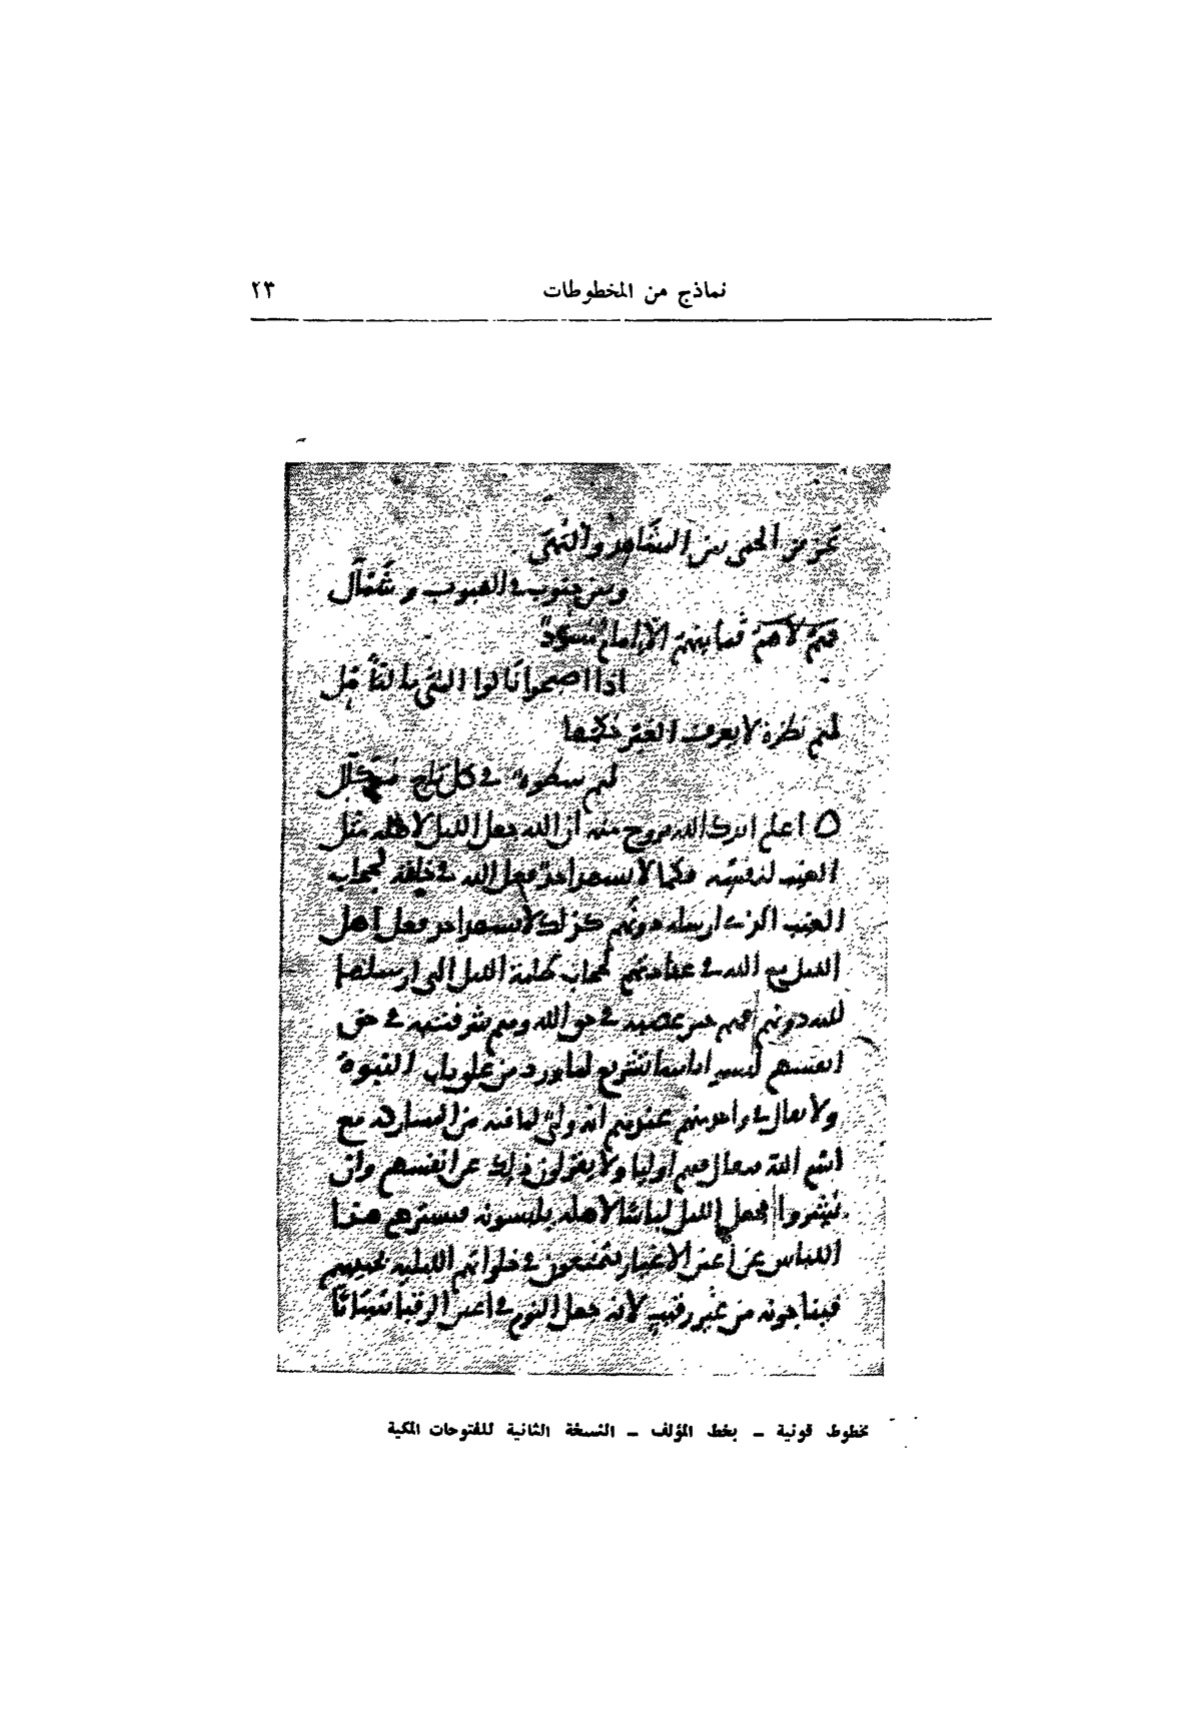 نماذج من المخطوطات ٢٣
بين المشاهد والنهى
وبين جنوب في الهبوب وشمأل
فمنهم
اذا اصبحوا نالوا المنى بالتأمل
لهم نظرة لا يعرف الغير حكمها
لهم سطوة في كل تاج مكلل
اعلم ايدك الله بروح منه ان الله جعل الليل لاهله مثل
الغيب لنفسه فكما لا يشهد احد فعل الله في خلقه لحجاب
الغيب الذي ارسله دونهم كذلك لا يشهد احد فعل اهل
الليل مع الله في عبادتهم لحجاب ظلمة الليل التي ارسلها
الله دونهم فهم خير عصبة في حق الله وهم شر فتية في حق
انفسهم ليسوا بانبياء تشريع لما ورد من غلق باب النبوة
ولا يقال في واحد منهم عندهم انه ولي لما فيه من المشاركة مع
اسم الله فيقال فيهم اوليا ولا يقولون ذلك عن انفسهم وان
بشروا فجعل الليل لباسا لاهله يلبسونه فيسترهم هذا
اللباس عن اعين الاغيار يتمتعون في خلواتهم الليلية بحبيبهم
فيناجونه من غير رقيب لانه جعل النوم في اعين الرقبا سباتا
مخطوط قونية – بخط المؤلف – النسخة الثانية للفتوحات المكية